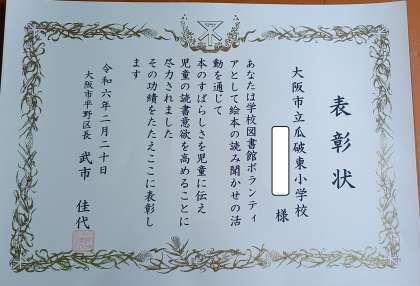 表彰状
大阪市立瓜破東小学校
様
あなたは学校図書館ボランティ
アとして絵本の読み聞かせの活
動を通じて
本のすばらしさを児童に伝え
児童の読書意欲を高めることに
尽力されました
その功績をたたえここに表彰し
ます
令和六年二月二十日
大阪市平野区長 武市 佳代